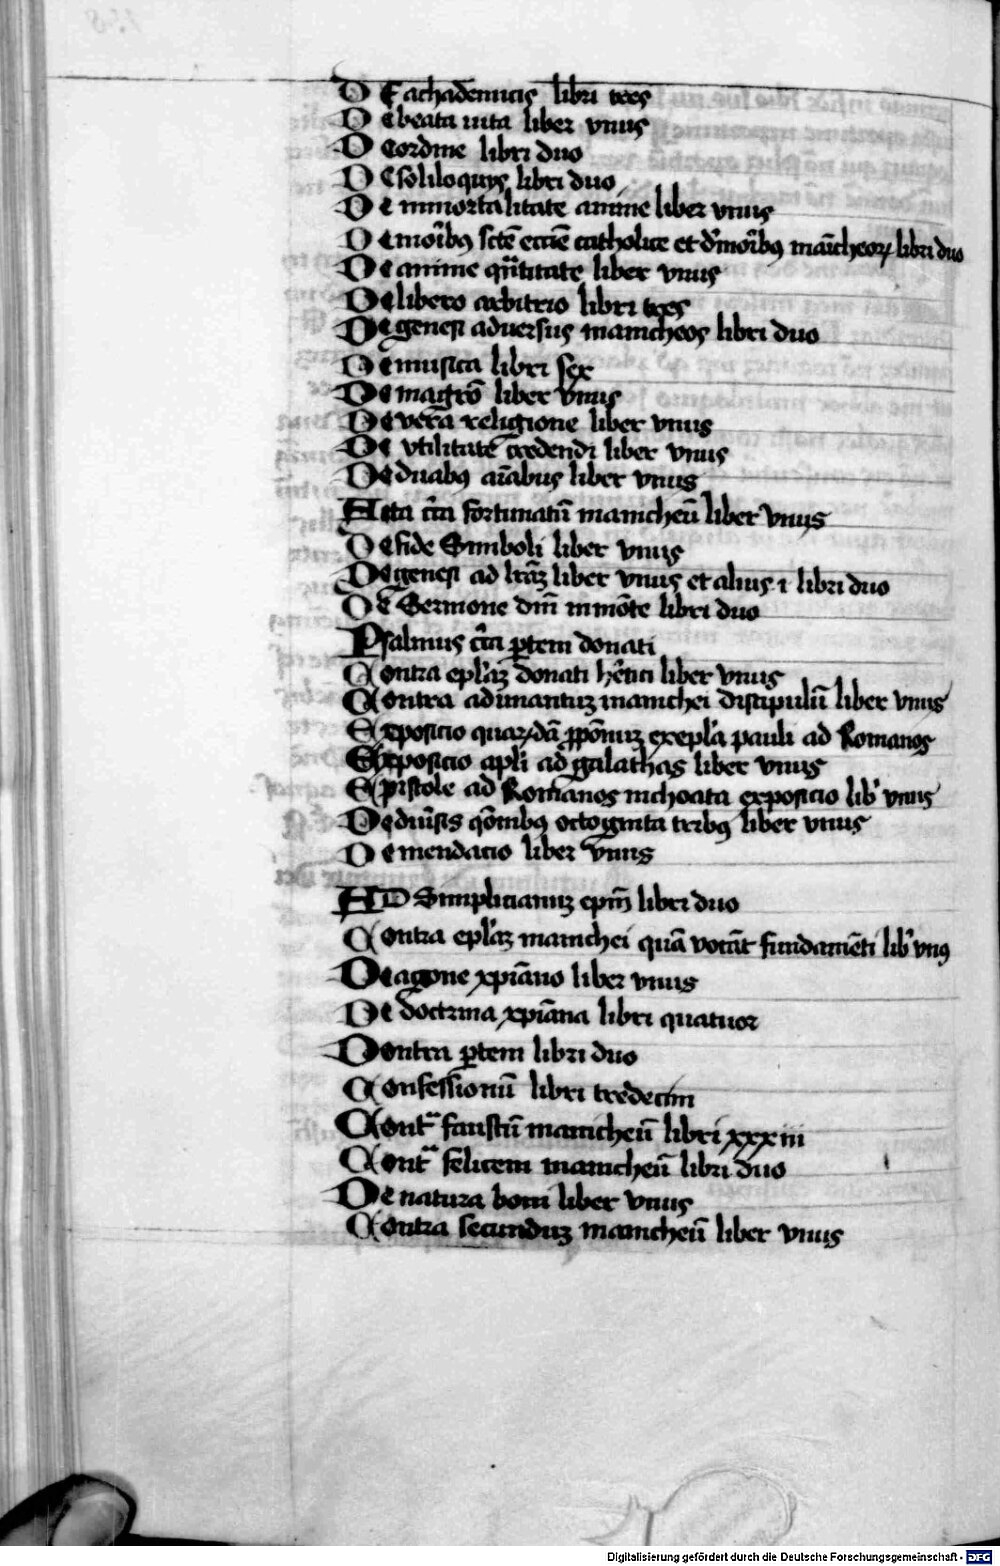 DE achademicis libri tres
De beata uita liber vnus
De ordine libri duo
De soliloquijs libri duo
De inmortalitate anime liber vnus
De moribꝯ scte eccie catholice et d' moribꝯ maicheoꝝ libri duo
De anime qntitate liber vnus
De libero arbitrio libri tres
De genesi aduersus manicheos libri duo
De musica libri sex
De magro liber vnus
De vera religione liber vnus
De vtilitate credendi liber vnus
De duabꝯ aīabus liber vnus
Acta cōtra fortunatū manicheū liber vnus
De fide Simboli liber vnus
De genesi ad lrāꝫ liber vnus et alius ī libri duo
De Sermone dnī in mōte libri duo
Psalmus cōtra ꝑtem donati
Contra eplāꝫ donati hētici liber vnus
Contra adimantuꝫ manichei discipulū liber vnus
Exposicio quarūdā ꝓpōnuꝫ ex epla pauli ad Romanos
Exposicio apli ad galathas liber vnus
Epistole ad Romanos inchoata exposicio lib' vnus
De diu'sis qōnibꝯ octoginta tribꝯ liber vnus
De mendacio liber vnus
AD Simplicianuꝫ epm̄ libri duo
Contra eplāꝫ manichei quā vocāt fundamēti lib' vnꝯ
De agone xpiāno liber vnus
De doctrina xpiāna libri quatuor
Dontra ꝑtem libri duo
Confessionū libri tredecim
Cont~ faustū manicheū libri xxxiii
Cont~ felicem manicheū libri duo
De natura boni liber vnus
Contra secunduꝫ manicheū liber vnus
Digitalisierung gefördert durch die Deutsche Forschungsgemeinschaft - DFG